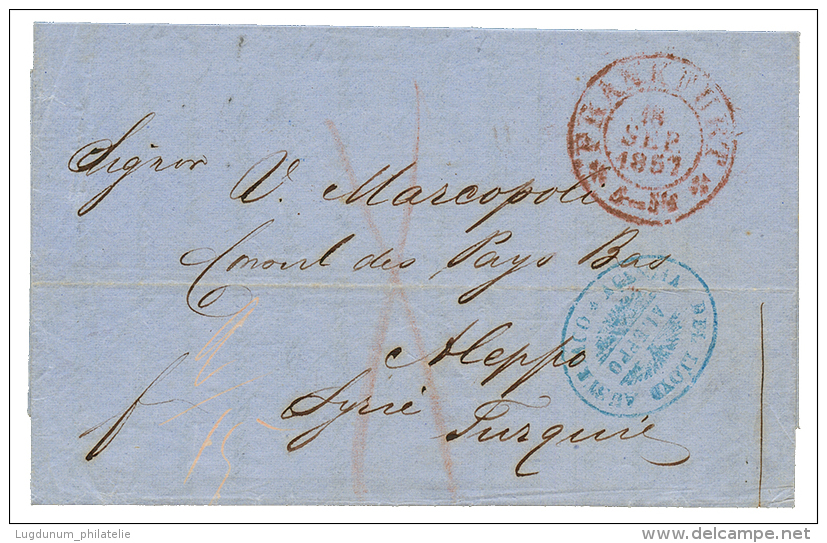 FRANKFURT
18
SEP.
1857
Signor
V. Marcopoli
Consul des Pays Bas
Aleppo
Syrie
Turquie
AGENZIA DEL LLOYD AUSTRIACO
ALEPPO
Lugdunum_philatelie
delcampe.net